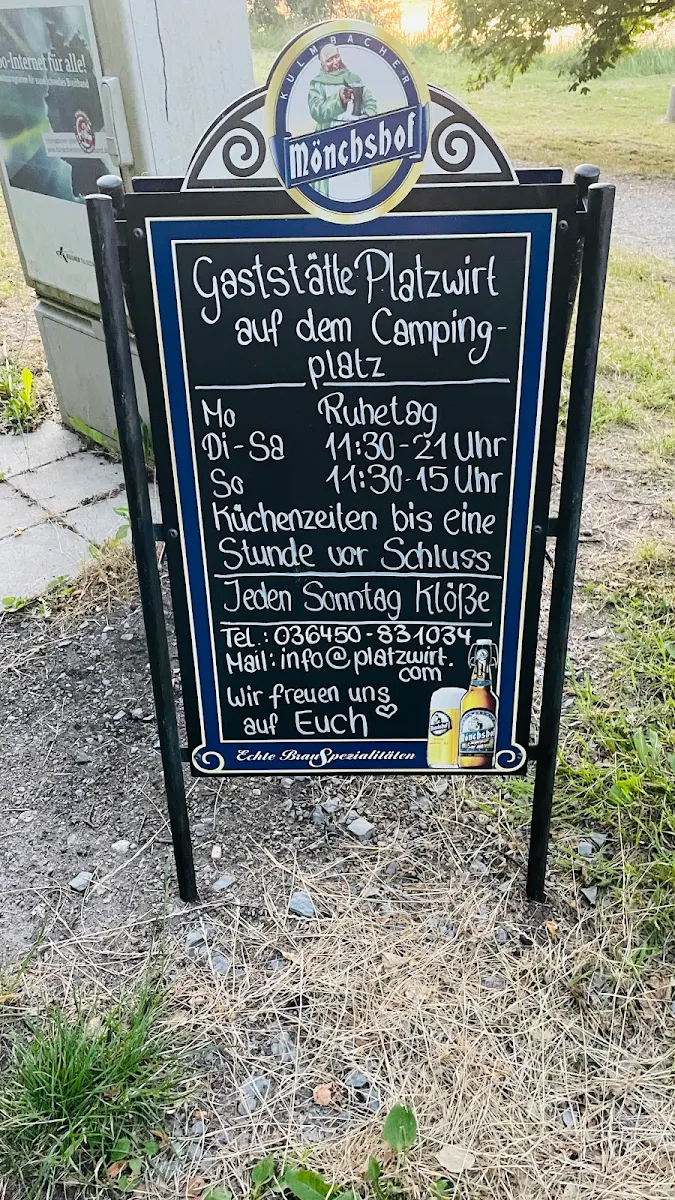 o-Internet für alle!
KULMBACHER
Mönchshof
Gaststätte Platzwirt
auf dem Camping-
platz
Mo Ruhetag
Di-Sa 11:30-21 Uhr
So 11:30-15 Uhr
Küchenzeiten bis eine
Stunde vor Schluss
Jeden Sonntag Klöße
Tel.: 036450-831034
Mail: info@platzwirt.
com
Wir freuen uns
auf Euch
Mönchshof
Echte BrauSpezialitäten